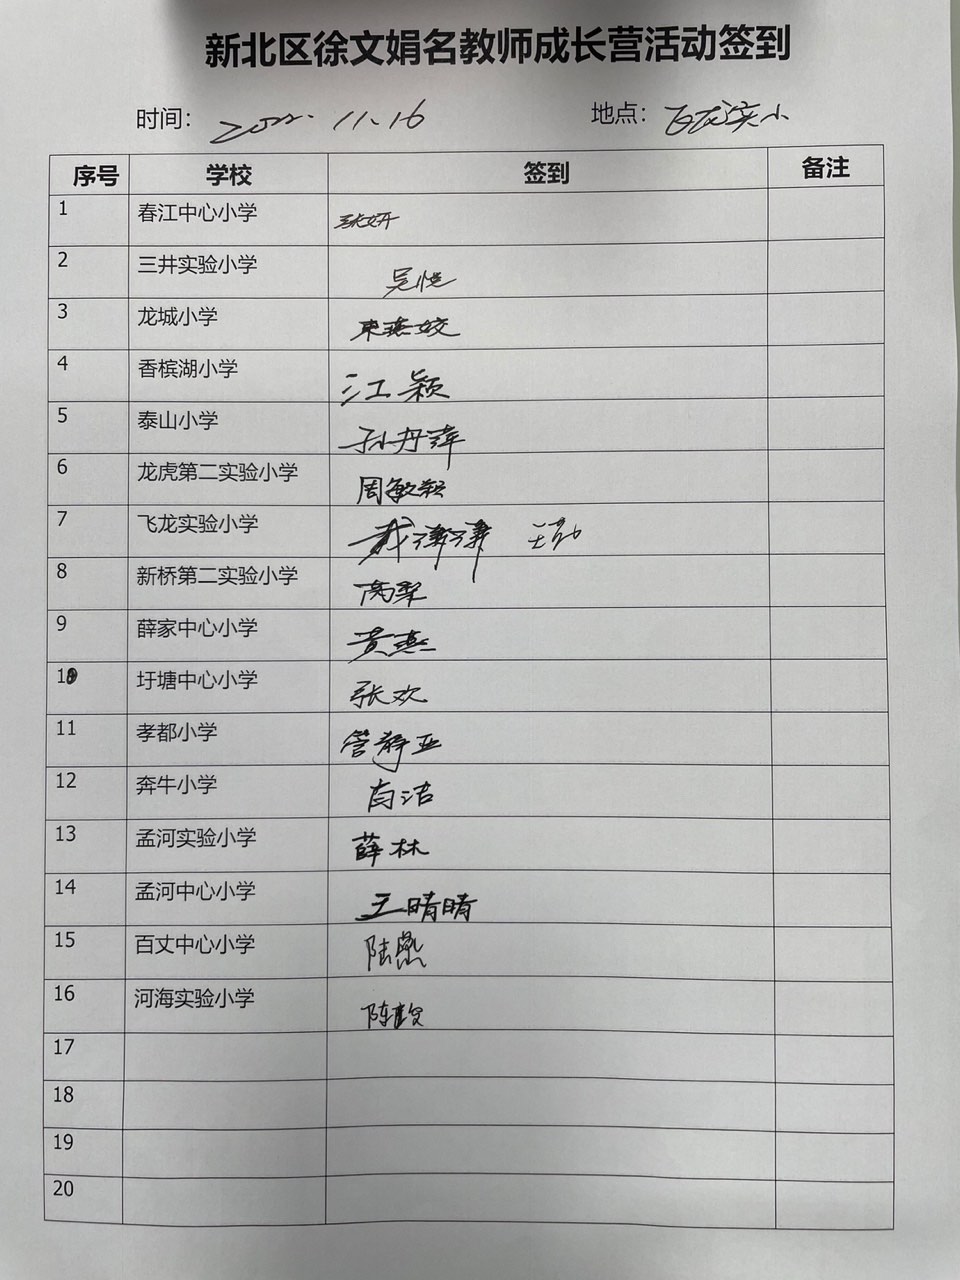 新北区徐文娟名教师成长营活动签到
时间： 2022.11.16 地点： 飞龙实小
序号 学校 签到 备注
1 春江中心小学 张妍
2 三井实验小学 吴悦
3 龙城小学 束燕姣
4 香槟湖小学 江颖
5 泰山小学 孙丹萍
6 龙虎第二实验小学 周敏颖
7 飞龙实验小学
8 新桥第二实验小学 高翠
9 薛家中心小学 黄燕
10 圩塘中心小学 张欢
11 孝都小学 管静亚
12 奔牛小学 肖洁
13 孟河实验小学 薛林
14 孟河中心小学 王晴晴
15 百丈中心小学 陆燕
16 河海实验小学
17
18
19
20